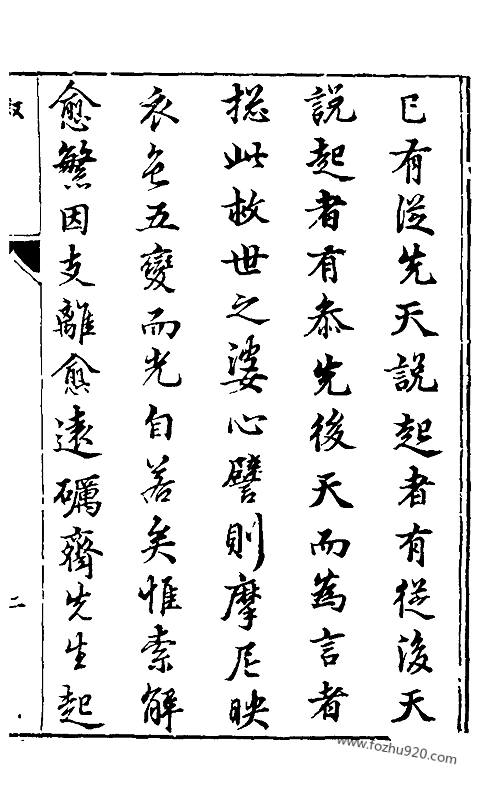 已有從先天説起者有從後天
説起者有叅先後天而為言者
揔此救世之婆心譬則摩尼映
衣色五變而光自若矣惟索解
愈繁因支離愈遠礪齋先生起
叙
二
www.fozhu920.com